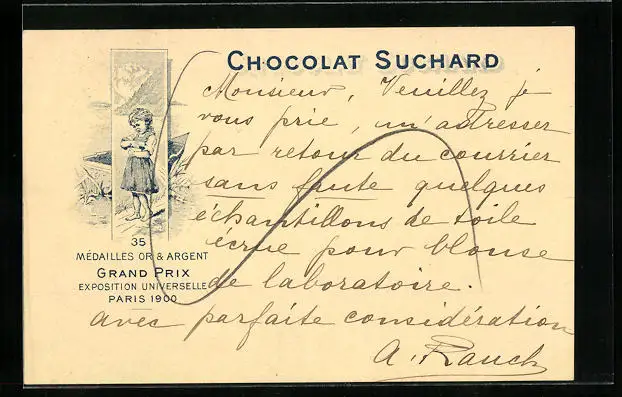 CHOCOLAT SUCHARD
Monsieur, Veuillez je
vous prie, m'adresser
par retour du courrier
sans faute quelques
échantillons de toile
écrue pour blouse
de laboratoire.
avec parfaite considération
A. Rauch
35
MÉDAILLES OR & ARGENT
GRAND PRIX
EXPOSITION UNIVERSELLE
PARIS 1900